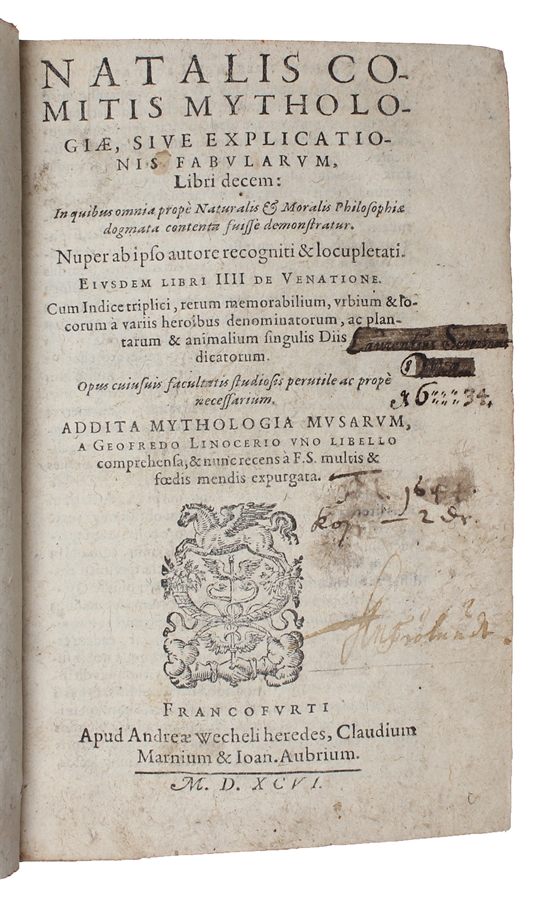 NATALIS CO-
MITIS MYTHOLO-
GIÆ, SIVE EXPLICATIO-
NIS FABVLARVM,
Libri decem:
In quibus omnia propè Naturalis & Moralis Philosophiæ
dogmata contenta fuisse demonstratur.
Nuper ab ipso autore recogniti & locupletati.
EIVSDEM LIBRI IIII DE VENATIONE.
Cum Indice triplici, rerum memorabilium, vrbium & lo-
corum à variis heroibus denominatorum, ac plan-
tarum & animalium singulis Diis
dicatorum.
Laurentius
Opus cuiusuis facultatis studiosis perutile ac propè
necessarium.
16 34.
ADDITA MYTHOLOGIA MVSARVM,
A GEOFREDO LINOCERIO VNO LIBELLO
comprehensa, & nunc recens à F.S. multis &
fœdis mendis expurgata.
FRANCOFVRTI
Apud Andreæ Wecheli heredes, Claudium
Marnium & Ioan. Aubrium.
M. D. XCVI.